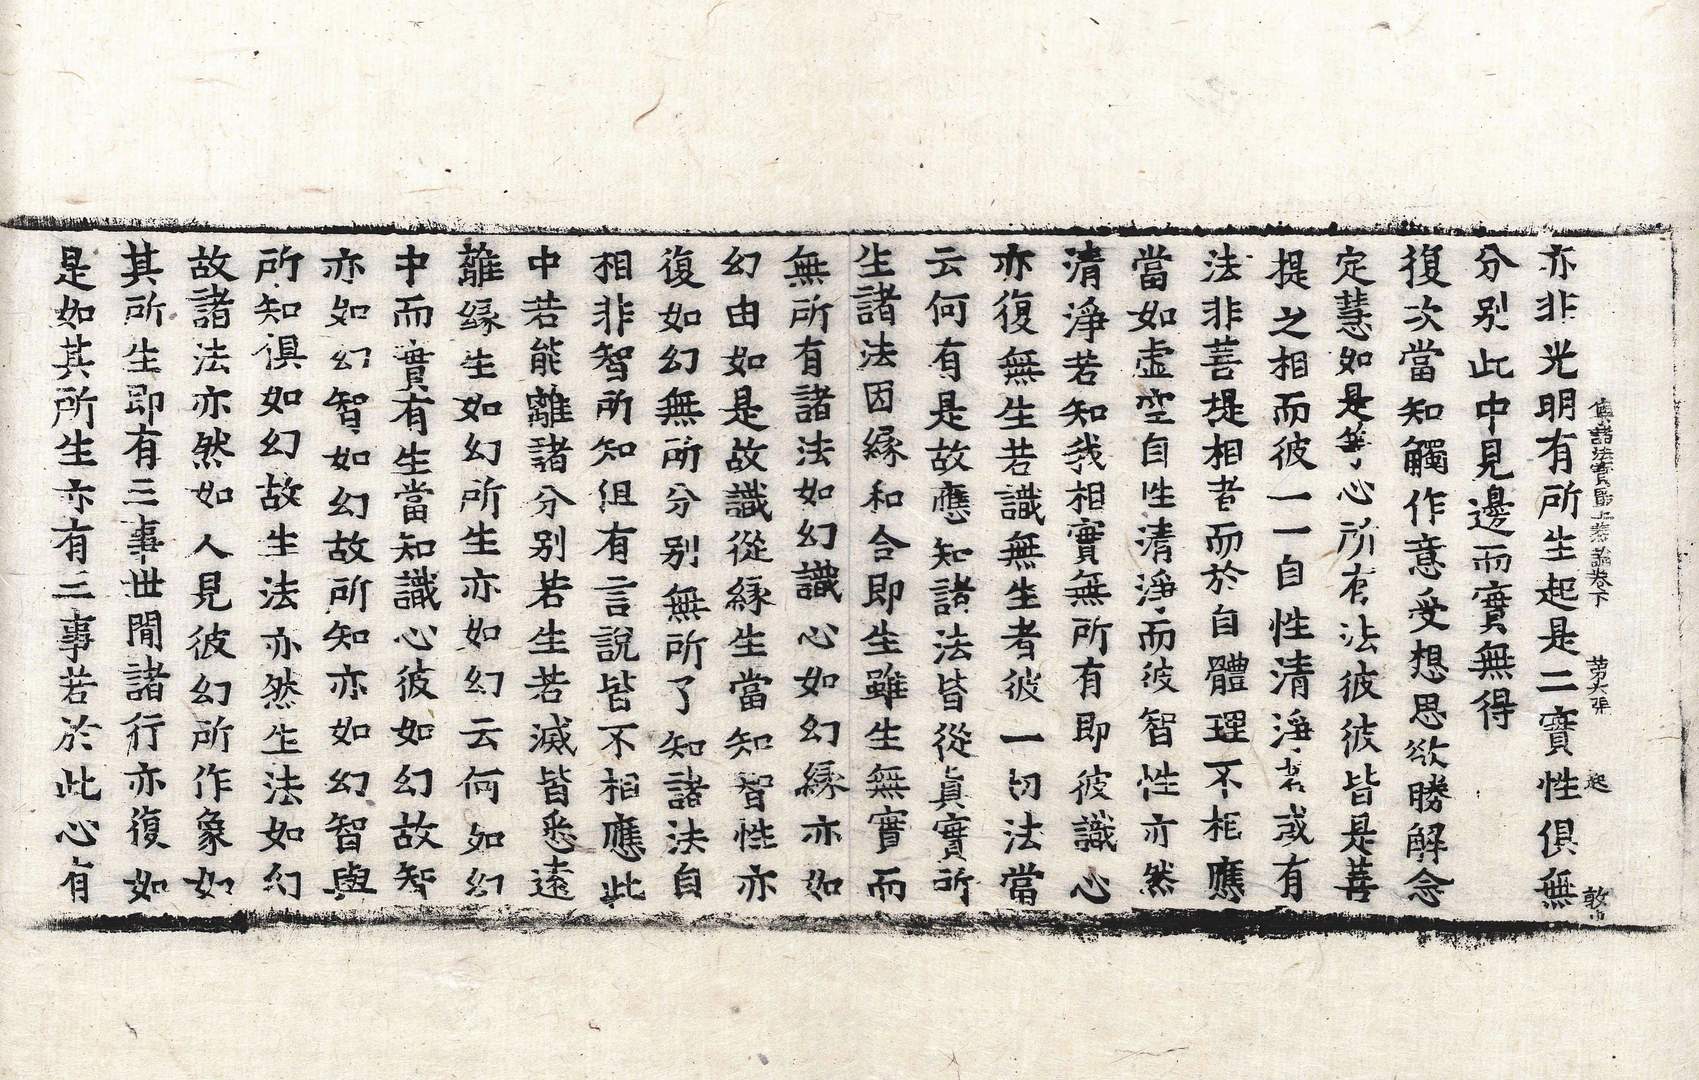 集諸法寶最上義論卷下 第六張 起 敦
亦非光明有所生起是二實性俱無
分別此中見邊而實無得
復次當知觸作意受想思欲勝解念
定慧如是等心所有法彼彼皆是菩
提之相而彼一一自性清淨若或有
法非菩提相者而於自體理不相應
當如虛空自性清淨而彼智性亦然
清淨若知我相實無所有即彼識心
亦復無生若識無生者彼一切法當
云何有是故應知諸法皆從真實所
生諸法因緣和合即生雖生無實而
無所有諸法如幻識心如幻緣亦如
幻由如是故識從緣生當知智性亦
復如幻無所分別無所了知諸法自
相非智所知但有言說皆不相應此
中若能離諸分別若生若滅皆悉遠
離緣生如幻所生亦如幻云何如幻
中而實有生當知識心彼如幻故智
亦如幻智如幻故所知亦如幻智與
所知俱如幻故生法亦然生法如幻
故諸法亦然如人見彼幻所作象如
其所生即有三事世間諸行亦復如
是如其所生亦有三事若於此心有